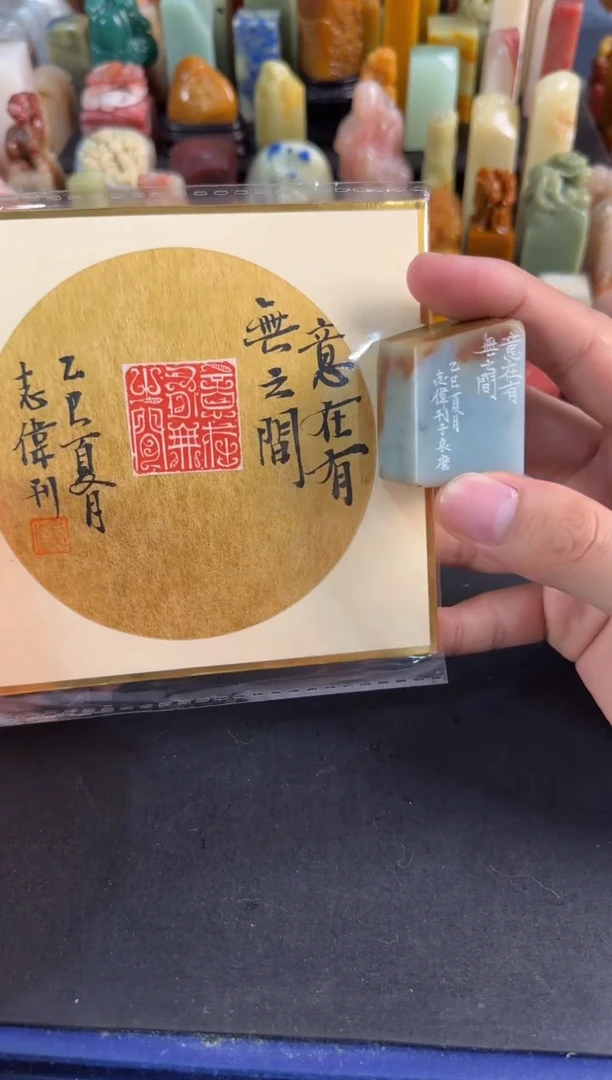 意在有
無之間
乙巳夏月
志偉刊
意在
有無
之間
意在有
無之間
乙巳夏月
志偉刊于泉唐